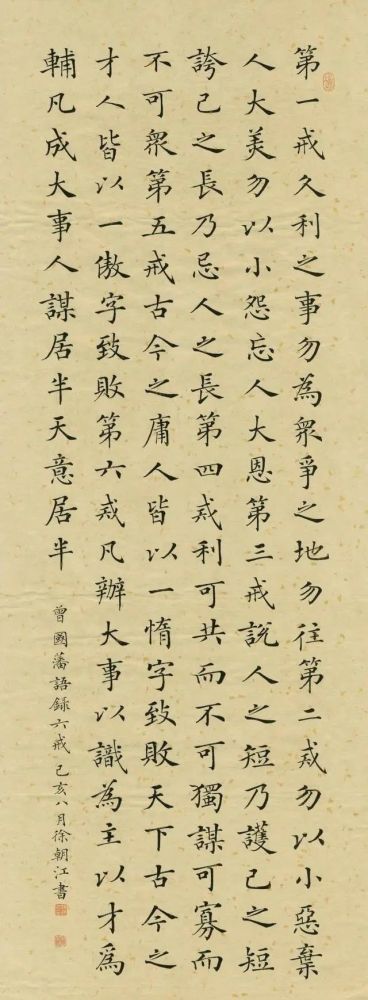 第一戒久利之事勿為衆爭之地勿往第二戒勿以小惡棄
人大美勿以小怨忘人大恩第三戒說人之短乃護己之短
誇己之長乃忌人之長第四戒利可共而不可獨謀可寡而
不可衆第五戒古今之庸人皆以一惰字致敗天下古今之
才人皆以一傲字致敗第六戒凡辦大事以識為主以才爲
輔凡成大事人謀居半天意居半
曾國藩語錄六戒己亥八月徐朝江書